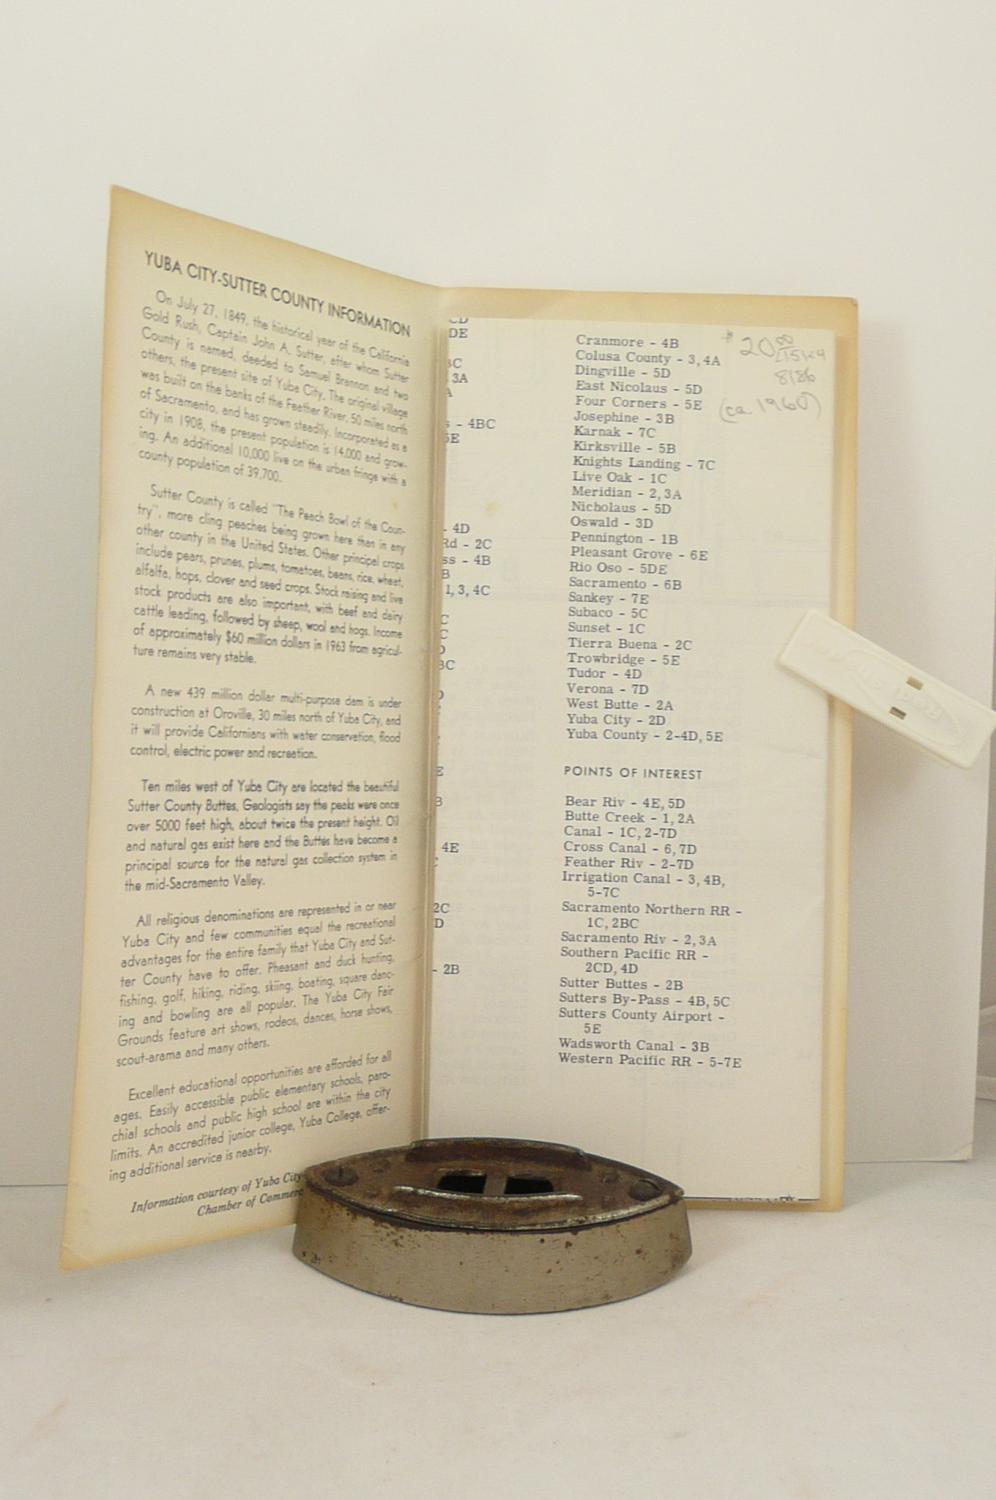 YUBA CITY-SUTTER COUNTY INFORMATION
On July 27, 1849, the historical year of the California
Gold Rush, Captain John A. Sutter, after whom Sutter
County is named, deeded to Samuel Brannon and two
others, the present site of Yuba City. The original village
was built on the banks of the Feather River, 50 miles north
of Sacramento, and has grown steadily. Incorporated as a
city in 1908, the present population is 14,000 and grow-
ing. An additional 10,000 live on the urban fringe with a
county population of 39,700.
Sutter County is called "The Peach Bowl of the Coun-
try", more cling peaches being grown here than in any
other county in the United States. Other principal crops
include pears, prunes, plums, tomatoes, beans, rice, wheat,
alfalfa, hops, clover and seed crops. Stock raising and live
stock products are also important, with beef and dairy
cattle leading, followed by sheep, wool and hogs. Income
of approximately $60 million dollars in 1963 from agricul-
ture remains very stable.
A new 439 million dollar multi-purpose dam is under
construction at Oroville, 30 miles north of Yuba City, and
it will provide Californians with water conservation, flood
control, electric power and recreation.
Ten miles west of Yuba City are located the beautiful
Sutter County Buttes. Geologists say the peaks were once
over 5000 feet high, about twice the present height. Oil
and natural gas exist here and the Buttes have become a
principal source for the natural gas collection system in
the mid-Sacramento Valley.
All religious denominations are represented in or near
Yuba City and few communities equal the recreational
advantages for the entire family that Yuba City and Sut-
ter County have to offer. Pheasant and duck hunting,
fishing, golf, hiking, riding, skiing, boating, square danc-
ing and bowling are all popular. The Yuba City Fair
Grounds feature art shows, rodeos, dances, horse shows,
scout-arama and many others.
Excellent educational opportunities are afforded for all
ages. Easily accessible public elementary schools, paro-
chial schools and public high school are within the city
limits. An accredited junior college, Yuba College, offer-
ing additional service is nearby.
Information courtesy of Yuba City
Chamber of Commerc
CD
DE
3C
3A
A
s - 4BC
5E
- 4D
Rd - 2C
ss - 4B
B
1, 3, 4C
C
C
D
3C
D
E
B
4E
2C
D
- 2B
Cranmore - 4B
Colusa County - 3, 4A
Dingville - 5D
East Nicolaus - 5D
Four Corners - 5E
Josephine - 3B
Karnak - 7C
Kirksville - 5B
Knights Landing - 7C
Live Oak - 1C
Meridian - 2, 3A
Nicholaus - 5D
Oswald - 3D
Pennington - 1B
Pleasant Grove - 6E
Rio Oso - 5DE
Sacramento - 6B
Sankey - 7E
Subaco - 5C
Sunset - 1C
Tierra Buena - 2C
Trowbridge - 5E
Tudor - 4D
Verona - 7D
West Butte - 2A
Yuba City - 2D
Yuba County - 2-4D, 5E
POINTS OF INTEREST
Bear Riv - 4E, 5D
Butte Creek - 1, 2A
Canal - 1C, 2-7D
Cross Canal - 6, 7D
Feather Riv - 2-7D
Irrigation Canal - 3, 4B,
5-7C
Sacramento Northern RR -
1C, 2BC
Sacramento Riv - 2, 3A
Southern Pacific RR -
2CD, 4D
Sutter Buttes - 2B
Sutters By-Pass - 4B, 5C
Sutters County Airport -
5E
Wadsworth Canal - 3B
Western Pacific RR - 5-7E
$20.00
8/86
(ca 1960)